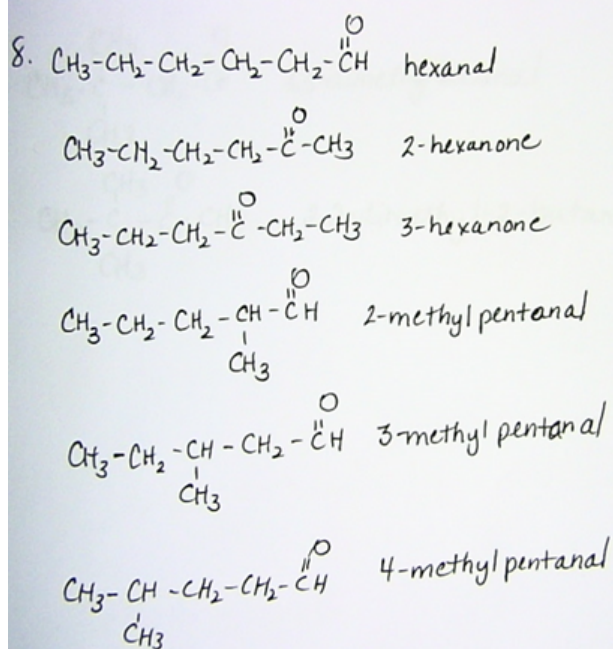 O
8. CH3-CH2-CH2-CH2-CH2-CH hexanal
O
CH3-CH2-CH2-CH2-C-CH3 2-hexanone
O
CH3-CH2-CH2-C-CH2-CH3 3-hexanone
O
CH3-CH2-CH2-CH-CH 2-methyl pentanal
CH3
O
CH3-CH2-CH-CH2-CH 3-methyl pentanal
CH3
O
CH3-CH-CH2-CH2-CH 4-methyl pentanal
CH3